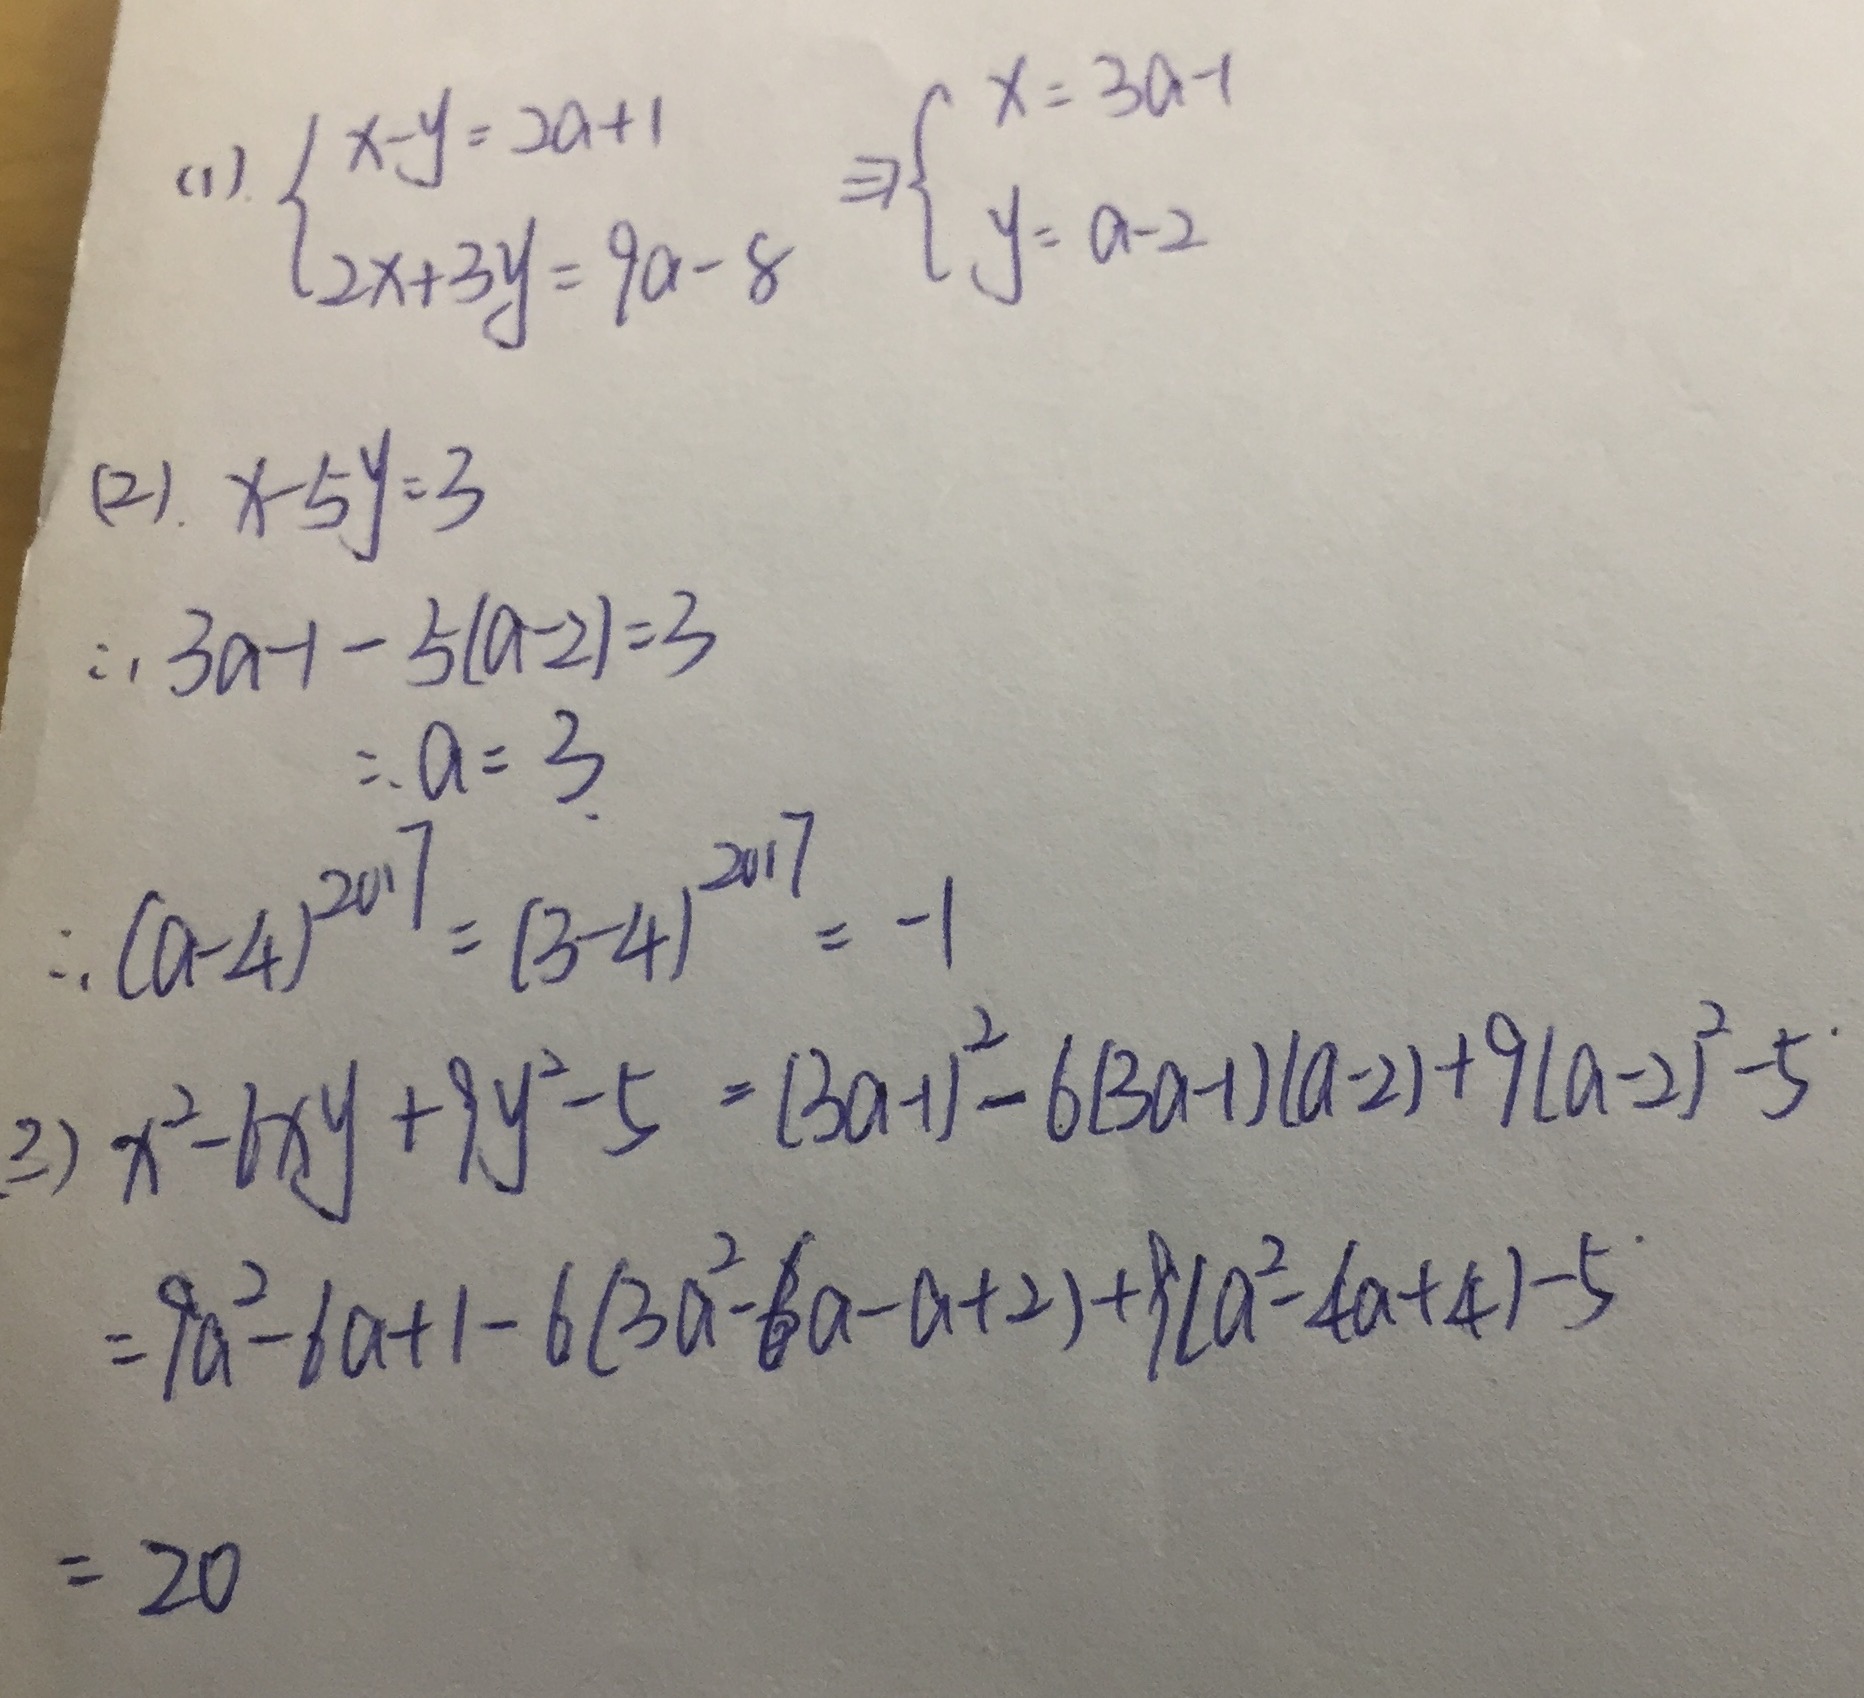 (1). { x-y=2a+1 ⇒ { x=3a-1
2x+3y=9a-8 y=a-2
(2). x-5y=3
∴ 3a-1-5(a-2)=3
∴ a=3.
∴ (a-4)^2017 = (3-4)^2017 = -1
3) x²-6xy+9y²-5 = (3a-1)²-6(3a-1)(a-2)+9(a-2)²-5
= 9a²-6a+1-6(3a²-6a-a+2)+9(a²-4a+4)-5
= 20